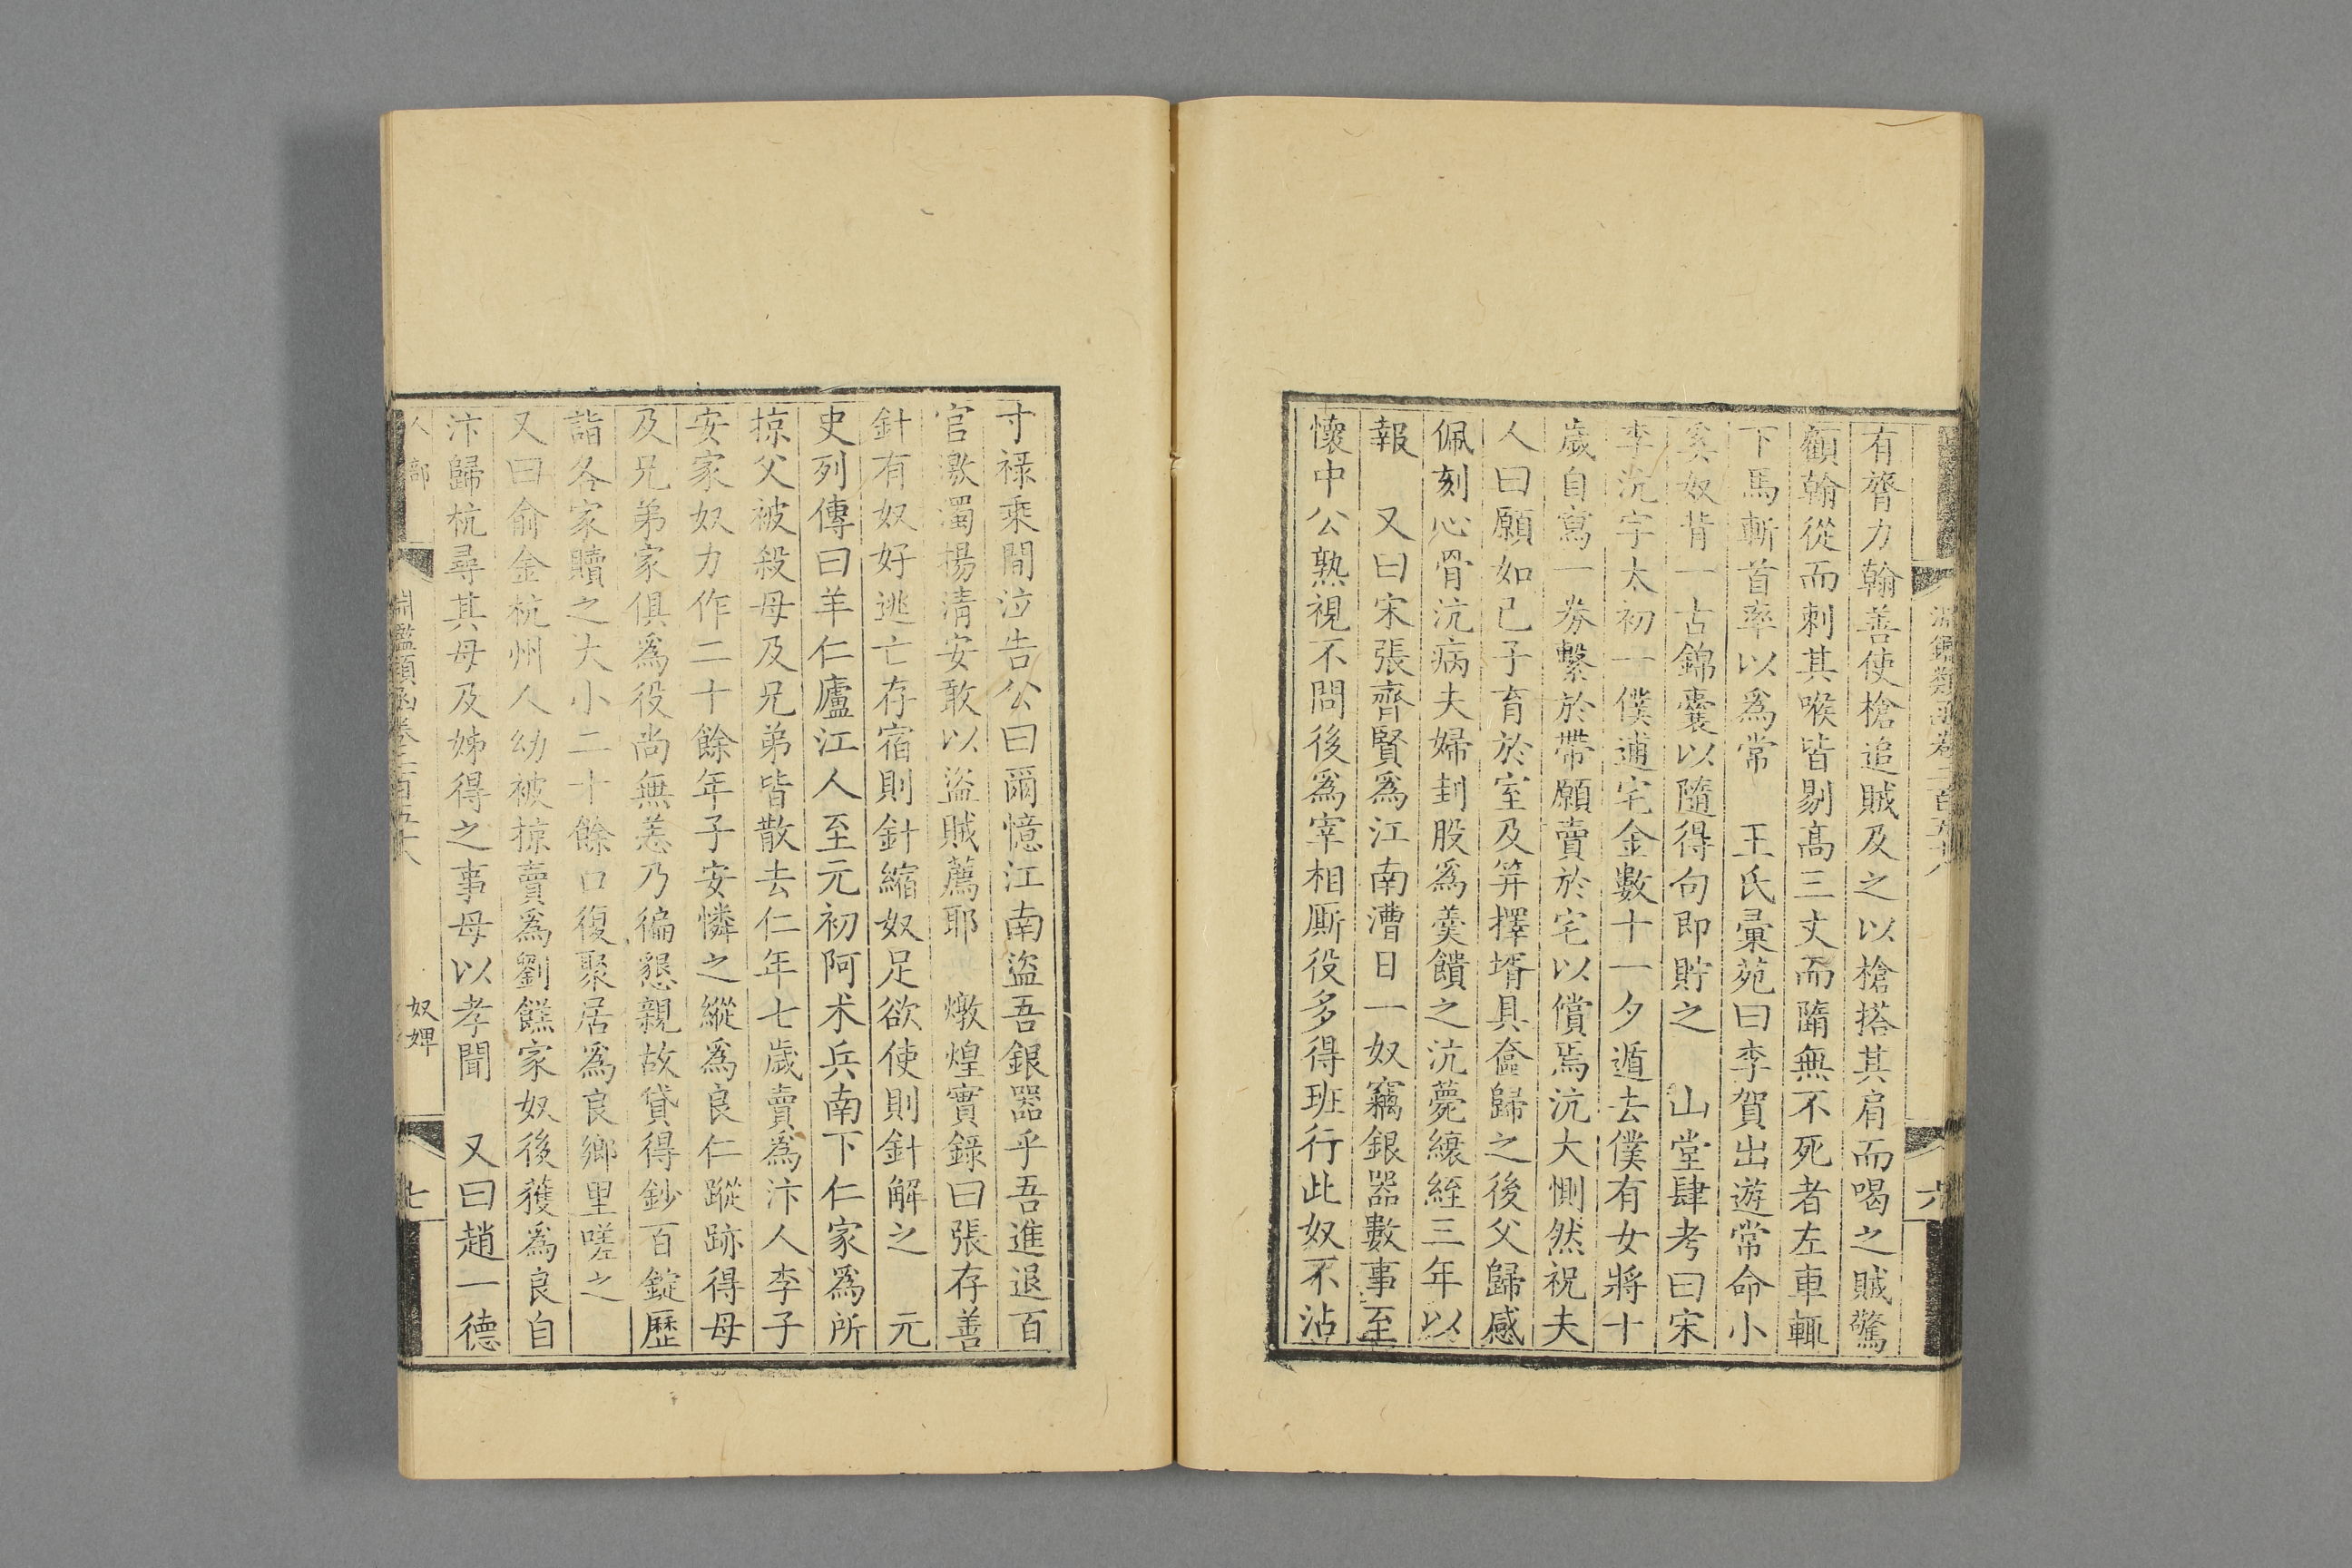 淵鑑類函卷二百五十八
六
有膂力翰善使槍追賊及之以槍搭其肩而喝之賊驚
顧翰從而刺其喉皆剔高三丈而隨無不死者左車輒
下馬斬首率以爲常　王氏彙苑曰李賀出遊常命小
奚奴背一古錦囊以隨得句即貯之　山堂肆考曰宋
李沆字太初一僕逋宅金數十一夕遁去僕有女將十
歲自寫一券繫於帶願賣於宅以償焉沆大惻然祝夫
人曰願如已子育於室及笄擇壻具奩歸之後父歸感
佩刻心骨沆病夫婦刲股爲羹饋之沆薨縗絰三年以
報　又曰宋張齊賢爲江南漕日一奴竊銀器數事至
懷中公熟視不問後爲宰相厮役多得班行此奴不沾
寸祿乘間泣告公曰爾憶江南盜吾銀器乎吾進退百
官激濁揚清安敢以盜賊薦耶　燉煌實錄曰張存善
針有奴好逃亡存宿則針縮奴足欲使則針解之　元
史列傳曰羊仁廬江人至元初阿术兵南下仁家爲所
掠父被殺母及兄弟皆散去仁年七歲賣爲汴人李子
安家奴力作二十餘年子安憐之縱爲良仁蹤跡得母
及兄弟家俱爲役尚無恙乃徧懇親故貸得鈔百錠歷
詣各家贖之大小二十餘口復聚居爲良鄉里嗟之
又曰俞金杭州人幼被掠賣爲劉饒家奴後獲爲良自
汴歸杭尋其母及姊得之事母以孝聞　又曰趙一德
人部
淵鑑類函卷二百五十八
奴婢
七